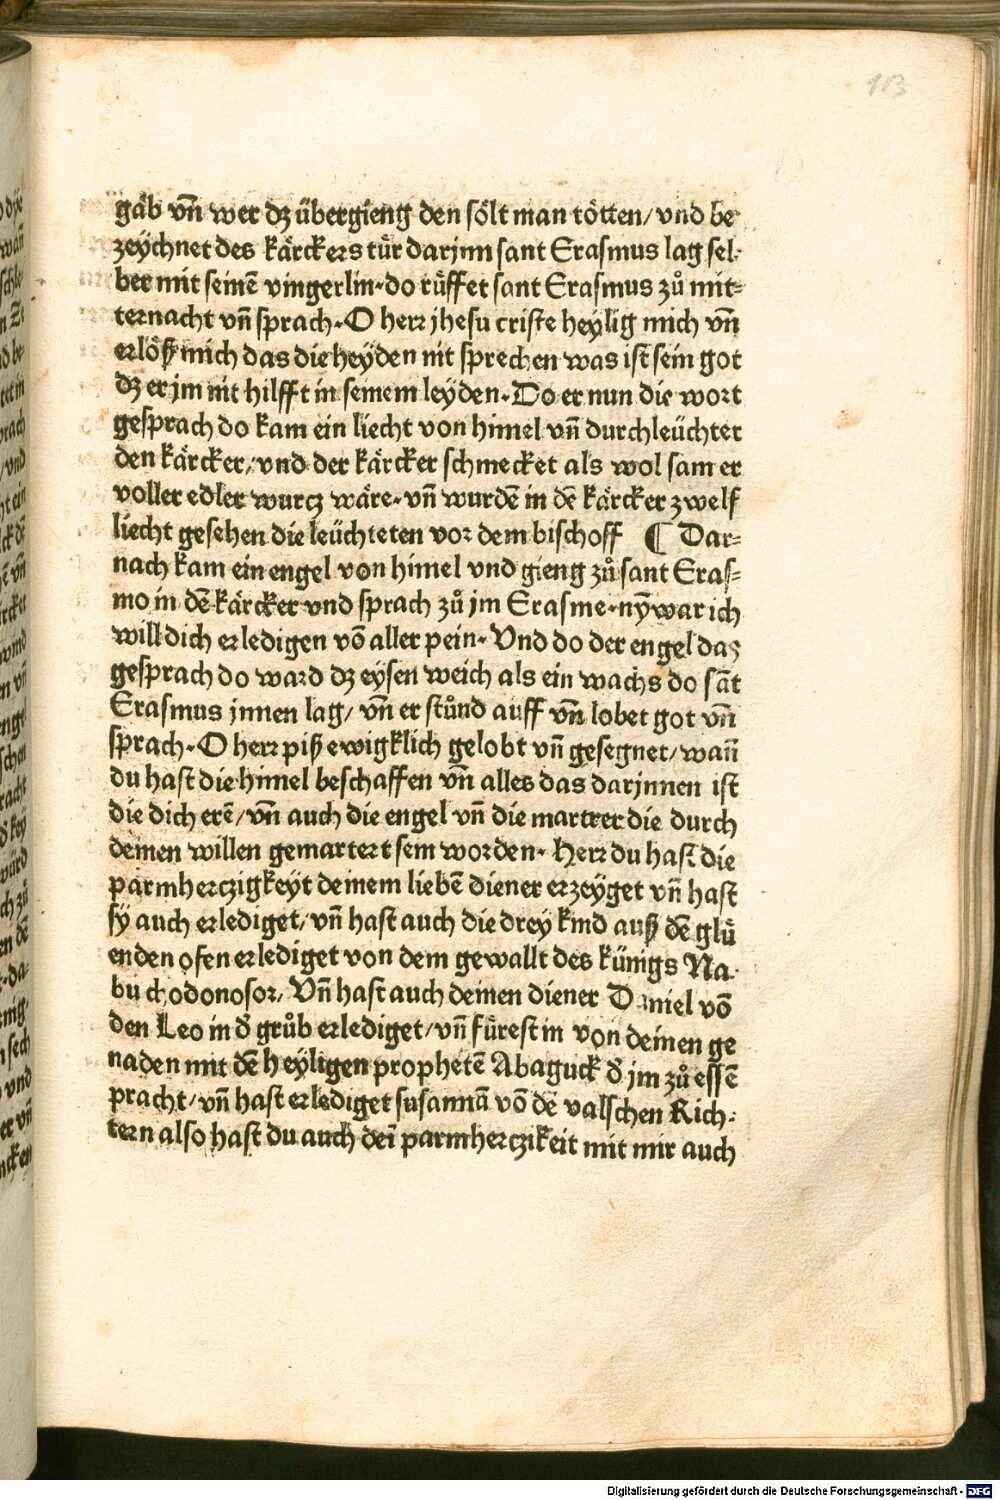 113
gäb vñ wer dz übergieng den sölt man tötten/ vnd be
zeychnet des kärckers tür darjnn sant Erasmus lag sel-
ber mit seinē vingerlin. do rüffet sant Erasmus zů mit-
ternacht vñ sprach. O herr jhesu criste heylig mich vñ
erlöß mich das die heyden nit sprechen was ist sein got
dz er jm nit hilfft in seinem leyden. Do er nun die wort
gesprach do kam ein liecht von himel vñ durchleüchter
den kärcker/ vnd der kärcker schmecket als wol sam er
voller edler wurcz wäre. vñ wurdē in dē kärcker zwelf
liecht gesehen die leüchteten vor dem bischoff ¶ Dar-
nach kam ein engel von himel vnd gieng zů sant Eras-
mo in dē kärcker vnd sprach zů jm Erasme. nȳ war ich
will dich erledigen vō aller pein. Vnd do der engel daz
gesprach do ward dz eysen weich als ein wachs do sāt
Erasmus jnnen lag/ vñ er stůnd auff vñ lobet got vñ
sprach. O herr piß ewigklich gelobt vñ gesegnet/ wañ
du hast die himel beschaffen vñ alles das darjnnen ist
die dich erē/ vñ auch die engel vñ die martrer die durch
deinen willen gemartert sein worden. Herr du hast die
parmherczigkeyt deinem liebē diener erzeyget vñ hast
sy auch erlediget/ vñ hast auch die drey kind auß dē glü
enden ofen erlediget von dem gewallt des künigs Na-
buchodonosor/ Vñ hast auch deinen diener Daniel vō
den Leo in d̕ grůb erlediget/ vñ fürest in von deinen ge
naden mit dē heyligen prophetē Abaguck d̕ jm zů essē
pracht/ vñ hast erlediget susannā vō dē valschen Rich-
tern also hast du auch dei̅ parmherczikeit mit mir auch
Digitalisierung gefördert durch die Deutsche Forschungsgemeinschaft - DFG